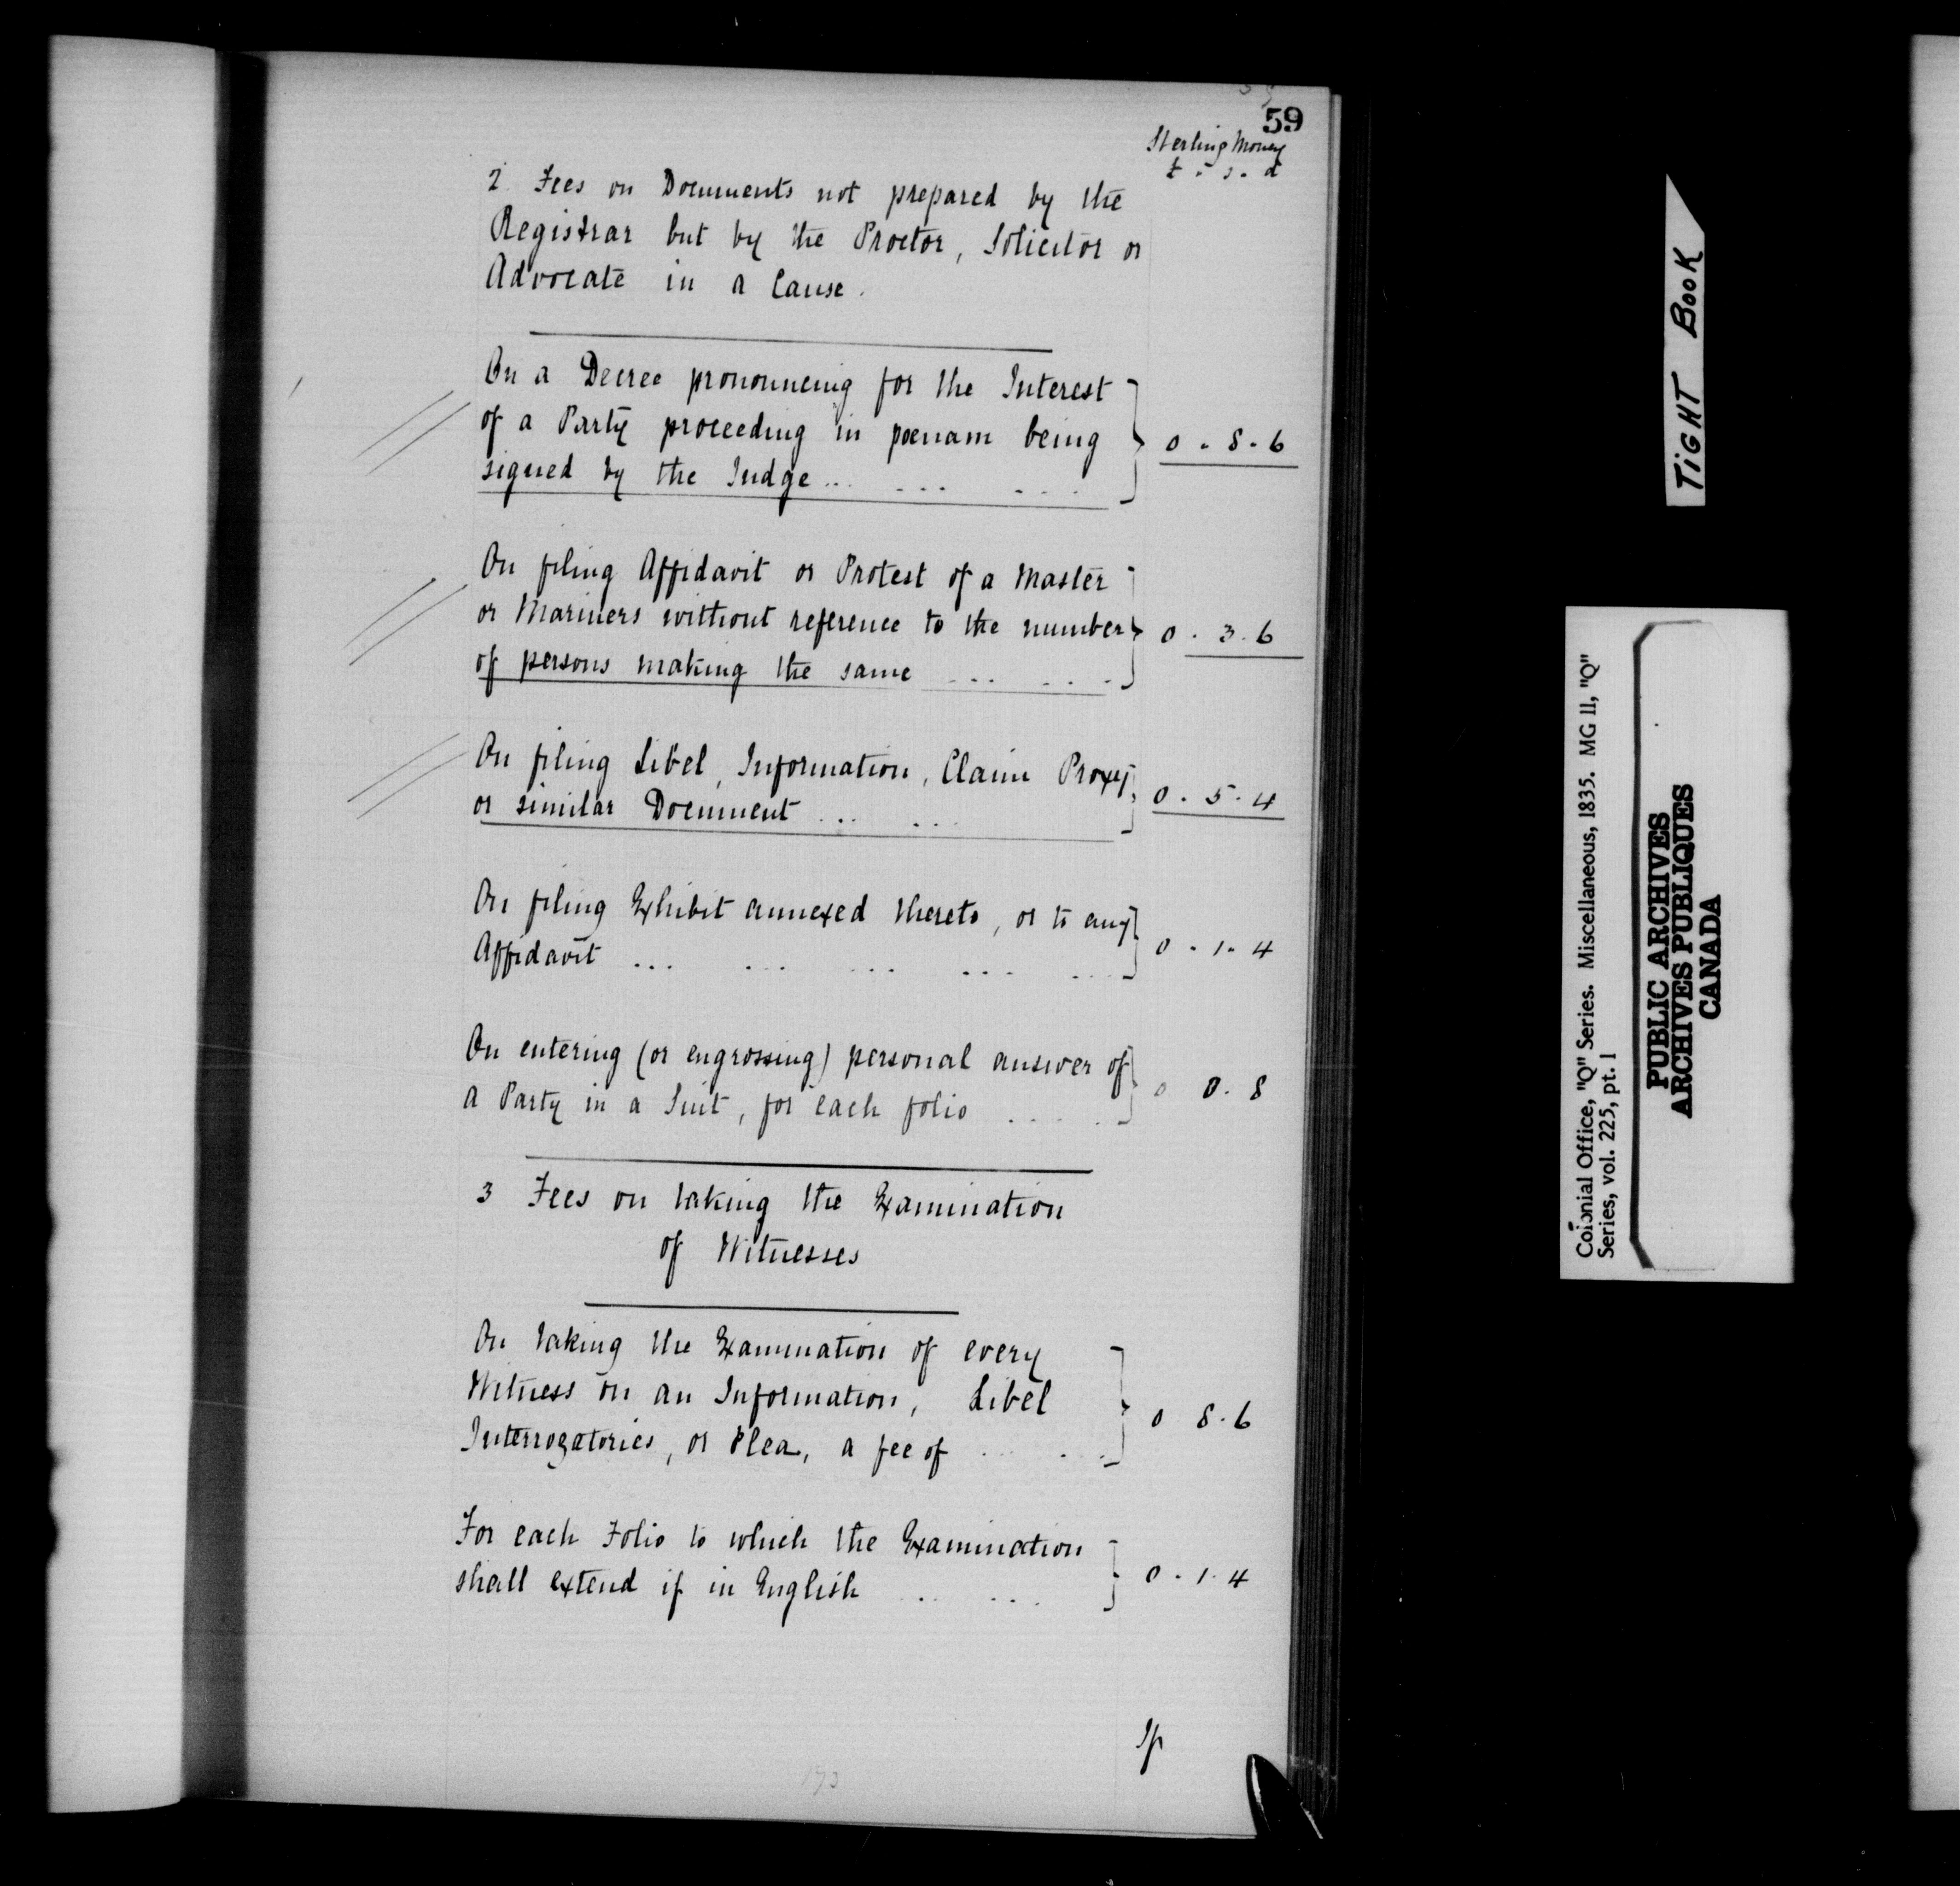 59
Sterling Money
£ - s. d
2 Fees on Documents not prepared by the
Registrar but by the Proctor, Solicitor or
Advocate in a Cause.
On a Decree pronouncing for the Interest
of a Party proceeding in poenam being
signed by the Judge ... ... ... 0 . 8 . 6
On filing Affidavit or Protest of a Master
or Mariners without reference to the number 0 . 3 . 6
of persons making the same ... ...
On filing Libel, Information, Claim Proxy
or similar Document ... ... 0 . 5 . 4
On filing Exhibit annexed thereto, or to any
Affidavit ... ... ... ... ... 0 . 1 . 4
On entering (or engrossing) personal answer of
a Party in a Suit, for each folio .... 0 0 . 8
3 Fees on taking the Examination
of Witnesses
On taking the Examination of every
Witness on an Information, Libel 0 8 . 6
Interrogatories, or Plea, a fee of ... ...
For each Folio to which the Examination
shall extend if in English ... ... 0 . 1 . 4
If
TIGHT BOOK
Colonial Office, "Q" Series. Miscellaneous, 1835. MG 11, "Q"
Series, vol. 225, pt. 1
PUBLIC ARCHIVES
ARCHIVES PUBLIQUES
CANADA